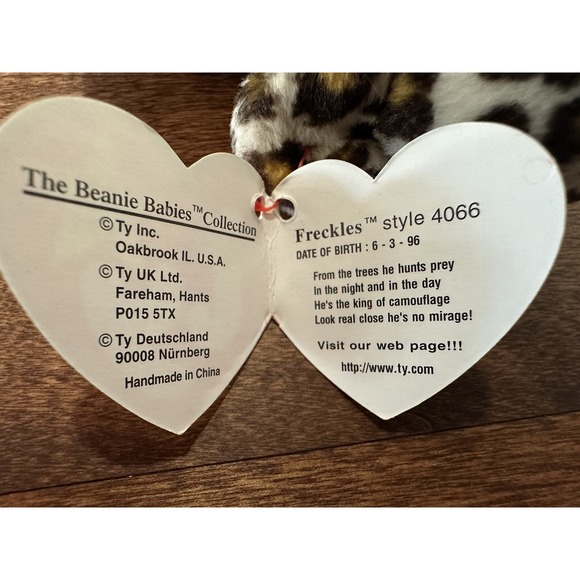 The Beanie Babies™Collection
© Ty Inc.
Oakbrook IL. U.S.A.
© Ty UK Ltd.
Fareham, Hants
P015 5TX
© Ty Deutschland
90008 Nürnberg
Handmade in China
Freckles™ style 4066
DATE OF BIRTH : 6 - 3 - 96
From the trees he hunts prey
In the night and in the day
He's the king of camouflage
Look real close he's no mirage!
Visit our web page!!!
http://www.ty.com